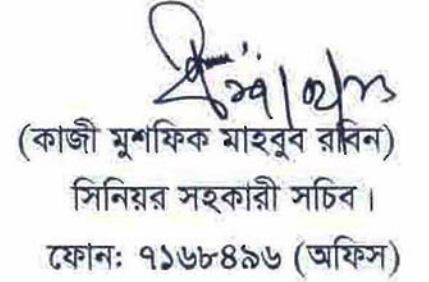 (কাজী মুশফিক মাহবুব রবিন)
সিনিয়র সহকারী সচিব।
ফোন: ৭১৬৮৪৯৬ (অফিস)